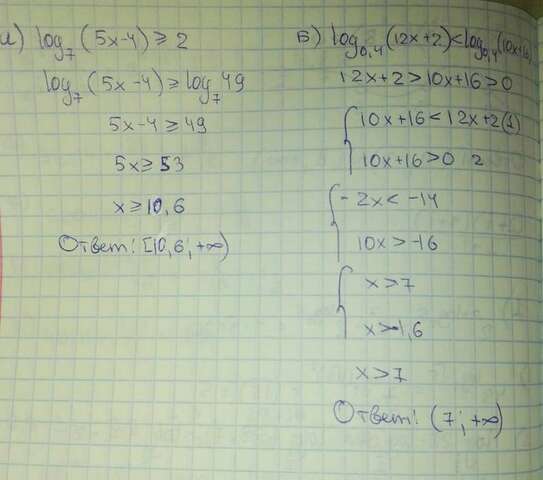 а) log₇(5x-4) ≥ 2
log₇(5x-4) ≥ log₇49
5x-4 ≥ 49
5x ≥ 53
x ≥ 10,6
Ответ: [10,6; +∞)
Б) log₀,₄(12x+2) < log₀,₄(10x+16)
12x+2 > 10x+16 > 0
{ 10x+16 < 12x+2 (1)
10x+16 > 0 2
{ -2x < -14
10x > -16
{ x > 7
x > -1,6
x > 7
Ответ: (7; +∞)